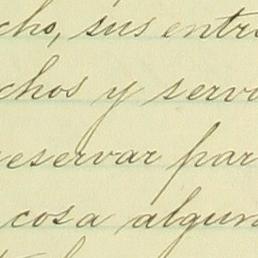 cho, sus entr
chos y servi
eservar par
cosa algun